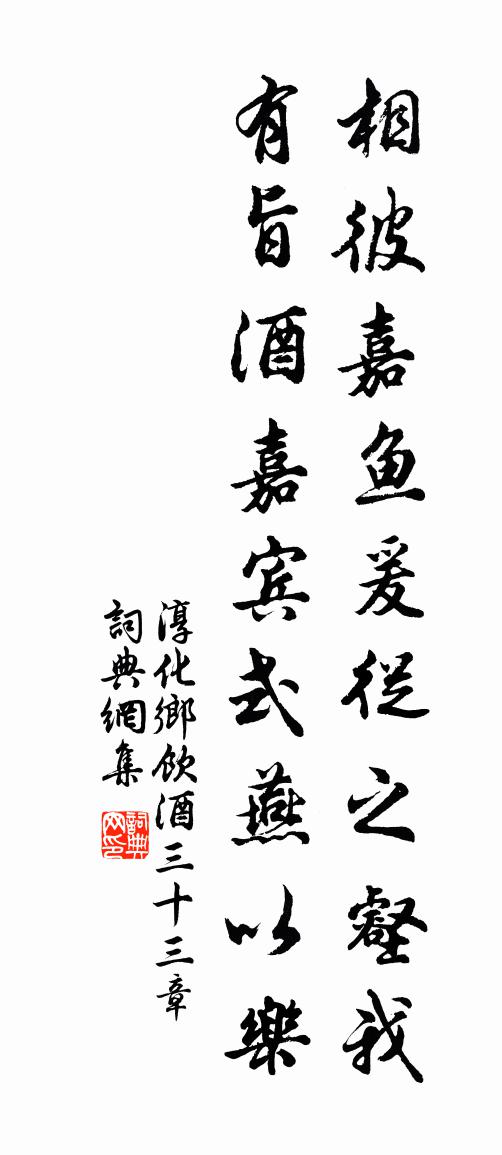 相彼嘉鱼爰從之壑我
有旨酒嘉宾式燕以樂
淳化鄉飲酒三十三章
詞典網集
詞典网印